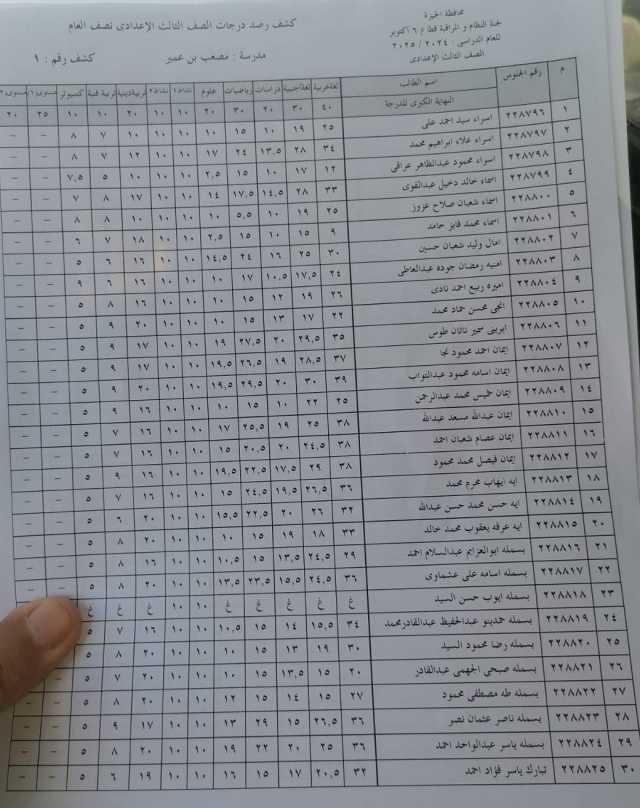 محافظة الجيزة
لجنة النظام و المراقبة قطاع ٦ أكتوبر
للعام الدراسى : ٢٠٢٤ / ٢٠٢٥
الصف الثالث الإعدادى
كشف رصد درجات الصف الثالث الإعدادى نصف العام
مدرسة : مصعب بن عمير
كشف رقم : ١
م رقم الجلوس اسم الطالب لغةعربية لغةاجنبية دراسات رياضيات علوم نشاط١ نشاط٢ تربيةدينية تربية فنية كمبيوتر مستوى١ مستوى٢
النهاية الكبرى للدرجة ٤٠ ٣٠ ٢٠ ٣٠ ٢٠ ١٠ ١٠ ٢٠ ١٠ ١٠ ٢٥ ٢٠
١ ٢٢٨٧٩٦ اسراء سيد احمد على ٢٥ ١٩ ١٠ ١٥ ١٠ ١٠ ١٠ ١٠ ٧ ٨ - -
٢ ٢٢٨٧٩٧ اسراء علاء ابراهيم محمد ٣٤ ٢٨ ١٣,٥ ٢٤ ١٧ ١٠ ١٠ ١٢ ٧ ٨ - -
٣ ٢٢٨٧٩٨ اسراء محمود عبدالظاهر عراقى ١٢ ١٧ ١٠ ١٥ ٢,٥ ١٠ ١٠ ١٠ ٥ ٧,٥ - -
٤ ٢٢٨٧٩٩ اسماء خالد دخيل عبدالقوى ٣٣ ٢٨ ١٤,٥ ١٧,٥ ١٤ ١٠ ١٠ ١٧ ٨ ٧ - -
٥ ٢٢٨٨٠٠ اسماء شعبان صلاح عزوز ٢٥ ١٩ ١٠ ٥,٥ ١٠ ١٠ ١٠ ١٠ ٨ ٨ - -
٦ ٢٢٨٨٠١ اسماء محمد فايز حامد ٩ ١٥ ١٠ ١٥ ٢,٥ ١٠ ١٠ ١٨ ٧ ٦ - -
٧ ٢٢٨٨٠٢ امال وليد شعبان حسين ٣٠ ٢٥ ١٦ ٢٤ ١٤,٥ ١٠ ١٠ ١٦ ٦ ٥ - -
٨ ٢٢٨٨٠٣ امنيه رمضان جوده عبدالعاطى ٢٤ ١٧,٥ ١٠,٥ ١٧ ١٠ ١٠ ١٠ ١٦ ٦ ٩ - -
٩ ٢٢٨٨٠٤ اميره ربيع احمد نادى ٢٦ ١٩ ١٢ ١٥ ١٠ ١٠ ١٠ ١٦ ٨ ٥ - -
١٠ ٢٢٨٨٠٥ انجى محسن حماد محمد ٢٢ ١٧ ١٣ ١٥ ١٠ ١٠ ١٠ ٢٠ ٩ ٥ - -
١١ ٢٢٨٨٠٦ ايرينى سمير ناثان طوس ٣٥ ٢٩,٥ ٢٠ ٢٧,٥ ١٩ ١٠ ١٠ ١٧ ٩ ٥ - -
١٢ ٢٢٨٨٠٧ ايمان احمد محمود نجا ٣٧ ٢٨,٥ ١٩ ٢٦,٥ ١٩,٥ ١٠ ١٠ ١٧ ٩ ٥ - -
١٣ ٢٢٨٨٠٨ ايمان اسامه محمود عبدالتواب ٣٩ ٣٠ ٢٠ ٢٩,٥ ١٩,٥ ١٠ ١٠ ٢٠ ٩ ٥ - -
١٤ ٢٢٨٨٠٩ ايمان خميس محمد عبدالرحمن ٢٥ ٢٢ ١٠ ١٥ ١٠ ١٠ ١٠ ١٦ ٩ ٥ - -
١٥ ٢٢٨٨١٠ ايمان عبدالله مسعد عبدالله ٣٨ ٢٥ ١٩ ٢٥,٥ ١٧ ١٠ ١٠ ١٦ ٧ ٥ - -
١٦ ٢٢٨٨١١ ايمان عصام شعبان احمد ٣٨ ٢٤,٥ ٢٠ ٢٠,٥ ١٥ ١٠ ١٠ ١٦ ٧ ٥ - -
١٧ ٢٢٨٨١٢ ايمان فيصل محمد محمود ٣٨ ٢٩ ١٧,٥ ٢٢,٥ ١٩,٥ ١٠ ١٠ ١٦ ٩ ٥ - -
١٨ ٢٢٨٨١٣ ايه ايهاب محرم محمد ٣٦ ٢٦,٥ ١٩,٥ ٢٤,٥ ١٥ ١٠ ١٠ ١٦ ٧ ٥ - -
١٩ ٢٢٨٨١٤ ايه حسن محمد حسن عبدالله ٣٢ ٢٦ ٢٠ ٢٢,٥ ١٥,٥ ١٠ ١٠ ٢٠ ٦ ٥ - -
٢٠ ٢٢٨٨١٥ ايه عرفه يعقوب محمد خالد ٣٣ ١٨ ١٩ ١٥ ١٠ ١٠ ١٠ ٢٠ ٨ ٥ - -
٢١ ٢٢٨٨١٦ بسمله ابوالعزايم عبدالسلام احمد ٢٩ ٢٤,٥ ١٣,٥ ١٥ ١٠,٥ ١٠ ١٠ ١٦ ٨ ٥ - -
٢٢ ٢٢٨٨١٧ بسمله اسامه على عشماوى ٣٦ ٢٤,٥ ١٥,٥ ٢٣,٥ ١٣,٥ ١٠ ١٠ ٢٠ ٨ ٥ - -
٢٣ ٢٢٨٨١٨ بسمله ايوب حسن السيد غ غ غ غ غ ١٠ ١٠ غ غ غ
٢٤ ٢٢٨٨١٩ بسمله حمدينو عبدالحفيظ عبدالقادرمحمد ٣٤ ١٥,٥ ١٤ ١٥ ١٠,٥ ١٠ ١٠ ١٦ ٧ ٥
٢٥ ٢٢٨٨٢٠ بسمله رضا محمود السيد ٣٠ ١٩ ١٣ ١٥ ١٠ ١٠ ١٠ ٢٠ ٨ ٥ - -
٢٦ ٢٢٨٨٢١ بسمله صبحى الجهمى عبدالقادر ٢٠ ١٥ ١٣,٥ ١٥ ١٠ ١٠ ١٠ ٢٠ ٧ ٥ - -
٢٧ ٢٢٨٨٢٢ بسمله طه مصطفى محمود ٢٧ ١٥ ١٤ ١٥ ١٢ ١٠ ١٠ ٢٠ ٨ ٥ - -
٢٨ ٢٢٨٨٢٣ بسمله ناصر عثمان نصر ٣٦ ٢٦,٥ ١٥ ٢٩ ١٣ ١٠ ١٠ ١٧ ٩ ٥ - -
٢٩ ٢٢٨٨٢٤ بسمله ياسر عبدالواحد احمد ٣٦ ٢٥ ٢٠ ٢٢ ١٩ ١٠ ١٠ ٢٠ ٨ ٥ - -
٣٠ ٢٢٨٨٢٥ تبارك ياسر فؤاد احمد ٣٢ ٢٠,٥ ١٧ ١٥ ١٦ ١٠ ١٠ ١٩ ٦ ٥ - -